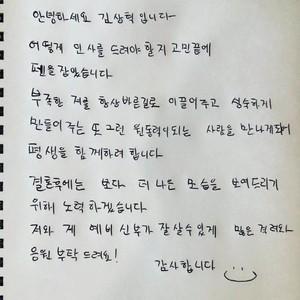 안녕하세요 김상혁 입니다
어떻게 인사를 드려야 할지 고민끝에
펜을 잡았습니다
부족한 저를 항상 바른길로 이끌어주고 성숙하게
만들어 주는 또 그런 원동력이 되는 사람을 만나게되어
평생을 함께하려 합니다
결혼후에는 보다 더 나은 모습을 보여드리기
위해 노력 하겠습니다
저와 제 예비 신부가 잘 살수 있게 많은 격려와
응원 부탁 드려요!
감사합니다